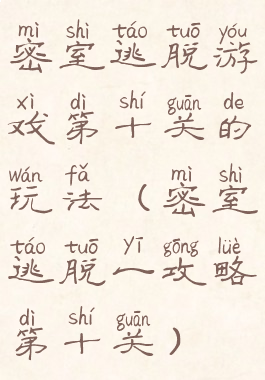 mì shì táo tuō yóu
密室逃脱游
xì dì shí guān de
戏第十关的
wán fǎ mì shì
玩法（密室
táo tuō yī gōng lüè
逃脱一攻略
dì shí guān
第十关）